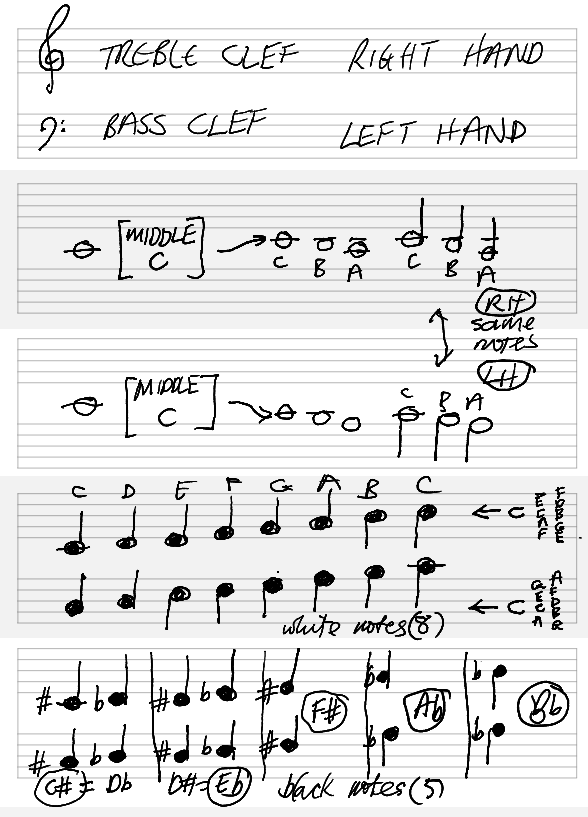 TREBLE CLEF RIGHT HAND
BASS CLEF LEFT HAND
[MIDDLE
C] C B A C B A
RH
same
notes
LH
[MIDDLE
C] C B A
C D E F G A B C ← C
← C
white notes (8)
# b # b # F# b Ab b Bb
# b # b # b b
C# = Db D# = Eb black notes (5)